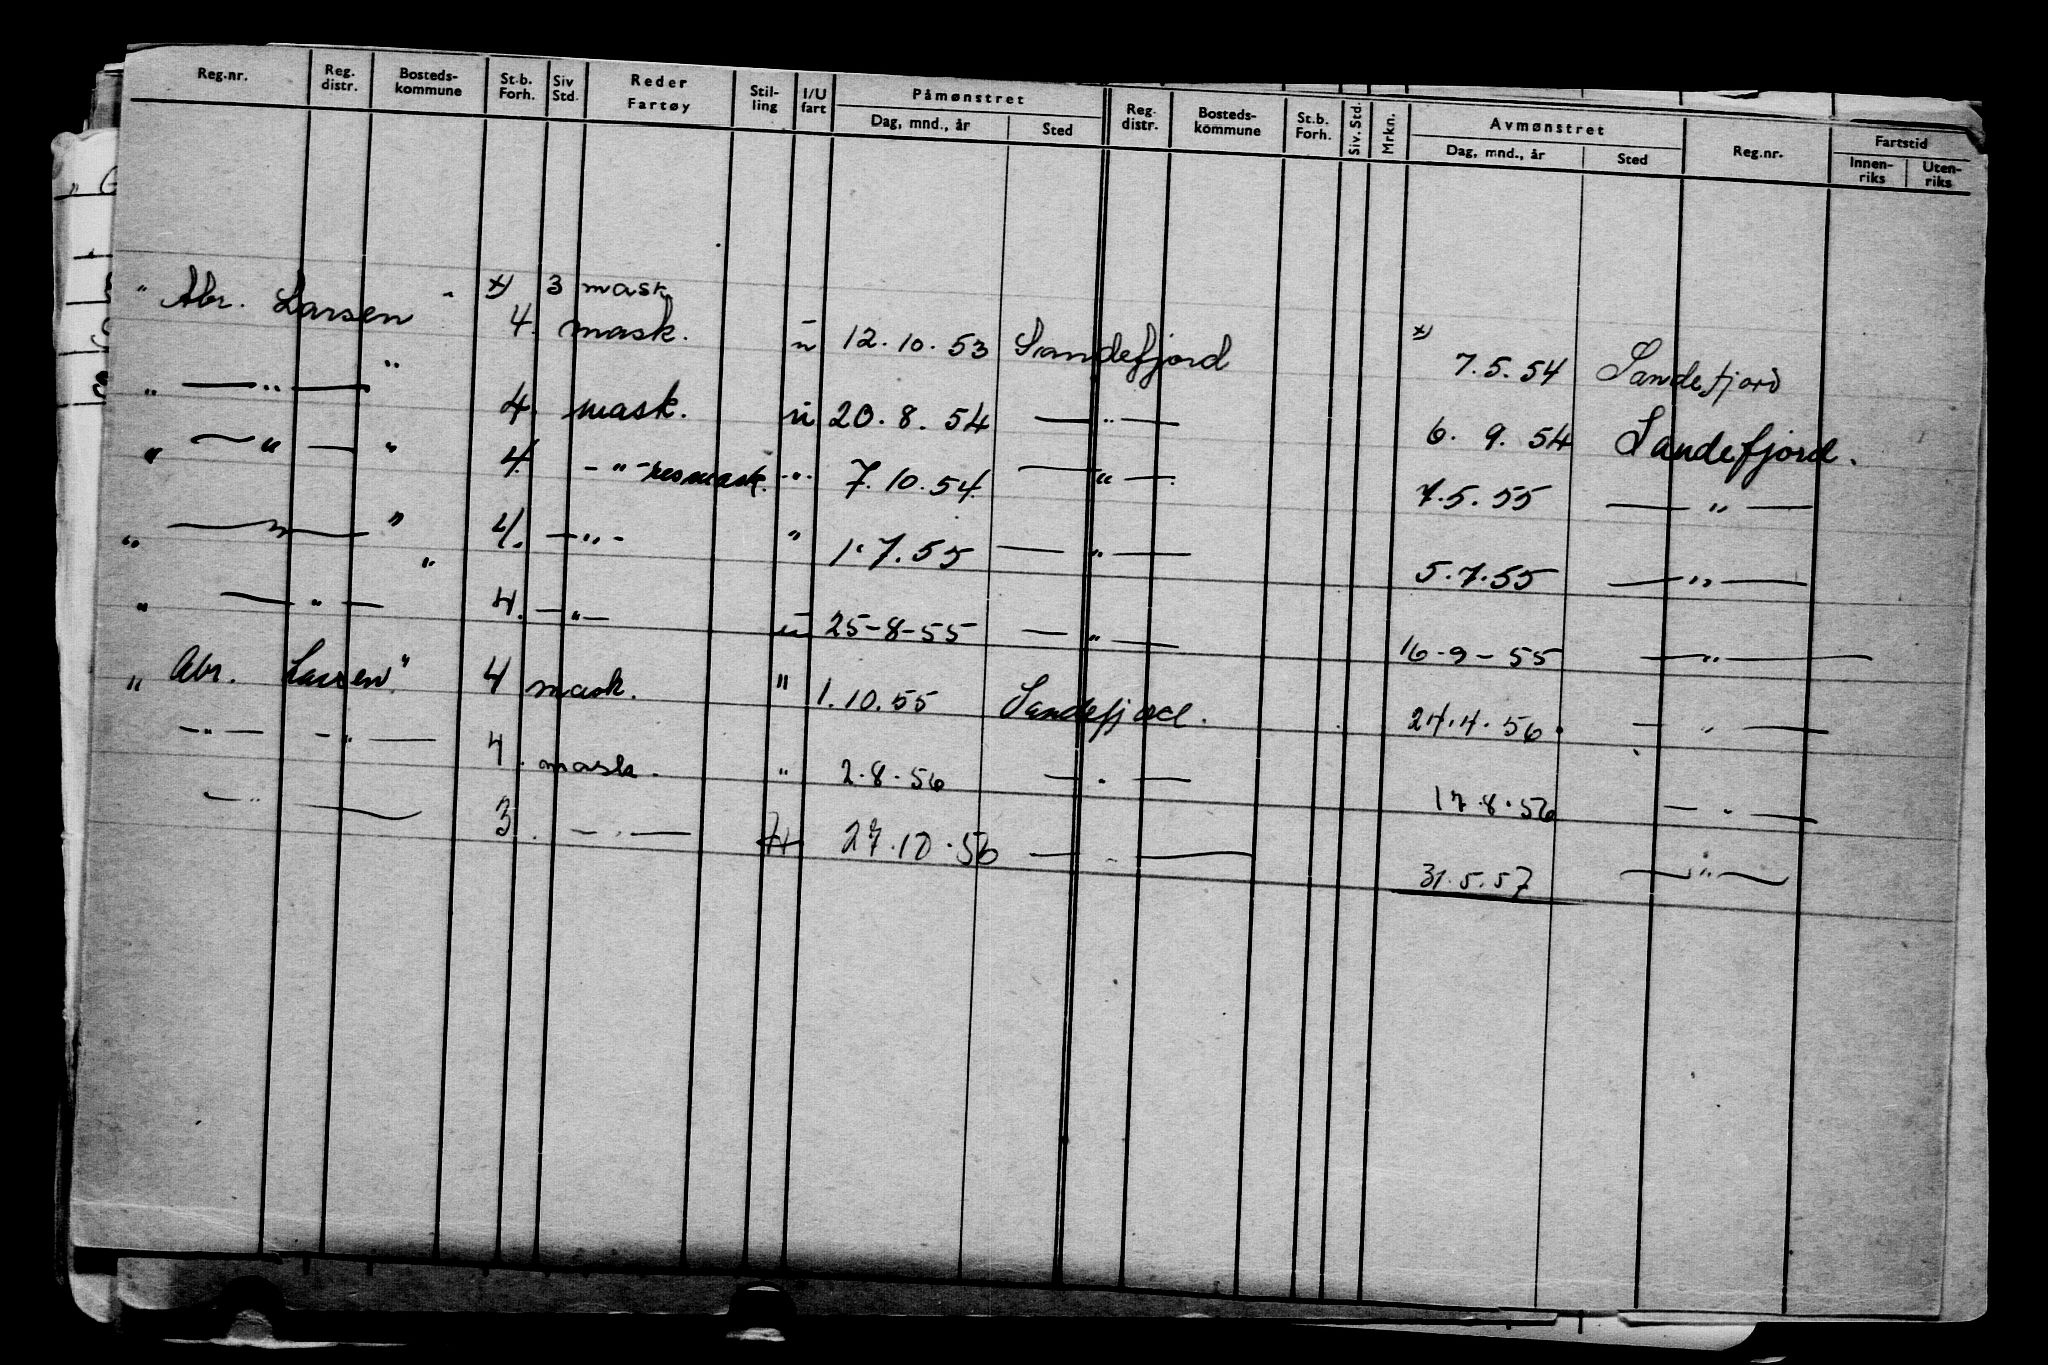 Reg.nr. Reg. distr. Bosteds-kommune St.b. Forh. Siv Std. Reder Fartøy Stil-ling I/U fart Påmønstret Dag, mnd., år Sted Reg. distr. Bosteds-kommune St.b. Forh. Siv. Std. Mrkn. Avmønstret Dag, mnd., år Sted Reg.nr. Fartstid Innen-riks Uten-riks
x) 3 mask
" Abr. Larsen " 4. mask. u 12.10.53 Sandefjord x) 7.5.54 Sandefjord
" — " — " 4. mask. u 20.8.54 — " — 6.9.54 Sandefjord.
" — " — " 4. - " - resmask. " 7.10.54 — " — 7.5.55 — " —
" — " — " 4. — " - " 1.7.55 — " — 5.7.55 — " —
" — " — " 4. — " — u 25-8-55 — " — 16-9-55 — " —
" Abr. Larsen" 4 mask. " 1.10.55 Sandefjord. 24.4.56 — " —
— " — — " — 4. mask. " 2.8.56 — " — 17.8.56 — " —
— " — 3. — " — 27.10.56 — " — 31.5.57 — " —